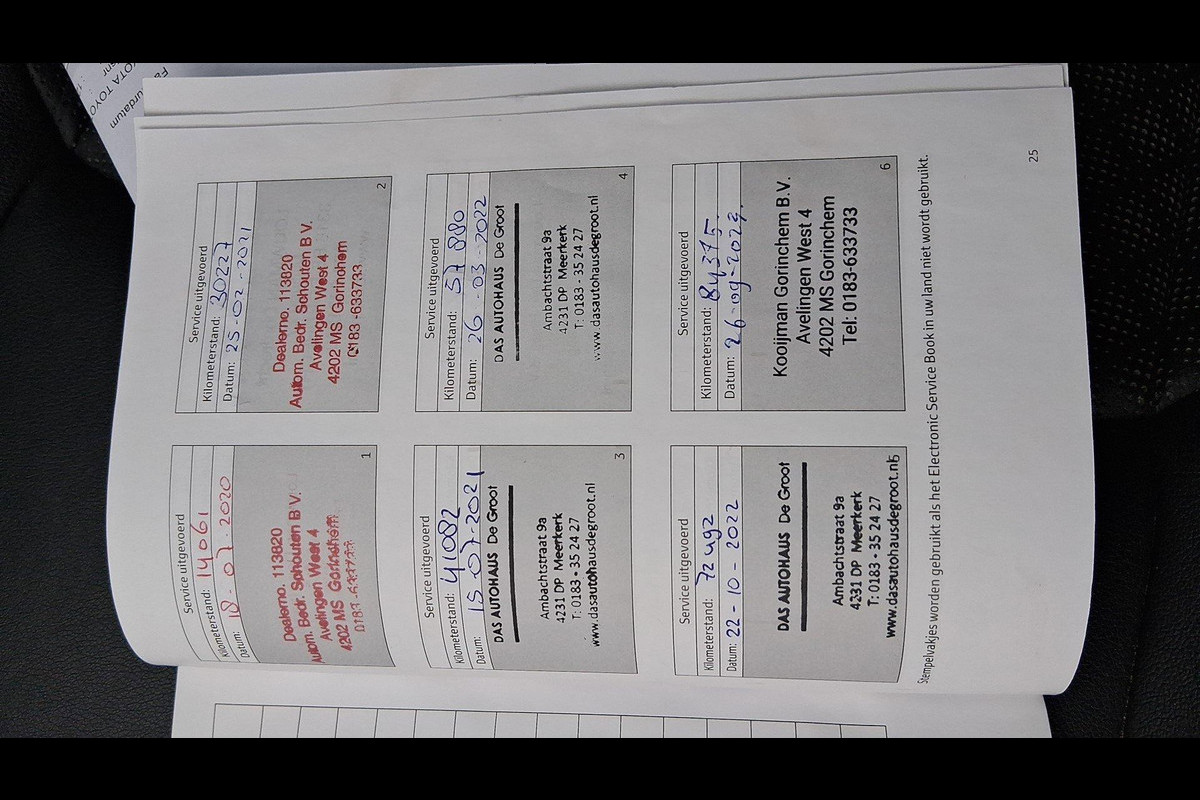 Service uitgevoerd
Kilometerstand: 14061
Datum: 18-07-2020
Dealerno. 113820
Autom. Bedr. Schouten B V.
Avelingen West 4
4202 MS Gorinchem
1
Service uitgevoerd
Kilometerstand: 30227
Datum: 25-02-2021
Dealerno. 113820
Autom. Bedr. Schouten B V.
Avelingen West 4
4202 MS Gorinchem
0183-633733
2
Service uitgevoerd
Kilometerstand: 41082
Datum: 15-07-2021
DAS AUTOHAUS De Groot
Ambachtstraat 9a
4231 DP Meerkerk
T: 0183 - 35 24 27
www.dasautohausdegroot.nl
3
Service uitgevoerd
Kilometerstand: 57880
Datum: 26-03-2022
DAS AUTOHAUS De Groot
Ambachtstraat 9a
4231 DP Meerkerk
T: 0183 - 35 24 27
www.dasautohausdegroot.nl
4
Service uitgevoerd
Kilometerstand: 72492
Datum: 22-10-2022
DAS AUTOHAUS De Groot
Ambachtstraat 9a
4231 DP Meerkerk
T: 0183 • 35 24 27
www.dasautohausdegroot.nl
5
Service uitgevoerd
Kilometerstand: 84375.
Datum: 26-09-2023.
Kooijman Gorinchem B.V.
Avelingen West 4
4202 MS Gorinchem
Tel: 0183-633733
6
Stempelvakjes worden gebruikt als het Electronic Service Book in uw land niet wordt gebruikt.
25